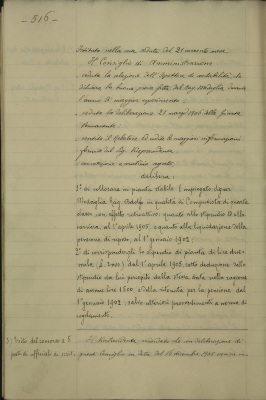 - 516 -
Il Consiglio di Amministrazione
veduta la relazione dell'Ispettore di contabilità, che
dichiara la buona prova fatta dal Rag. Medaglia durante
l'anno di maggior esperimento;
veduta la deliberazione 21 marzo 1906 della Giunta
Permanente;
sentito il Relatore ed udite le maggiori informazioni
fornite dal Sig. Vicepresidente;
votazione a scrutinio segreto,
delibera
1° di collocare in pianta stabile l'impiegato signor
Medaglia Rag. Adolfo in qualità di computista di quarta
classe con effetto retroattivo: quanto allo stipendio ed alla
carriera, al 1° aprile 1905, e quanto alla liquidazione della
pensione di riposo, al 1° gennaio 1902;
2° di corrispondergli lo stipendio di pianta di lire due-
mila (£ 2000) dal 1° aprile 1905, sotto deduzione dello
stipendio da lui percepito dalla stessa data nella ragione
di annue lire 1800, e della ritenuta per la pensione dal
1° gennaio 1902, salvo ulteriori provvedimenti a norma di
regolamenti.
Il Vicepresidente, ricordato che con deliberazione di
questo Consiglio in data del 16 dicembre 1905 veniva in-